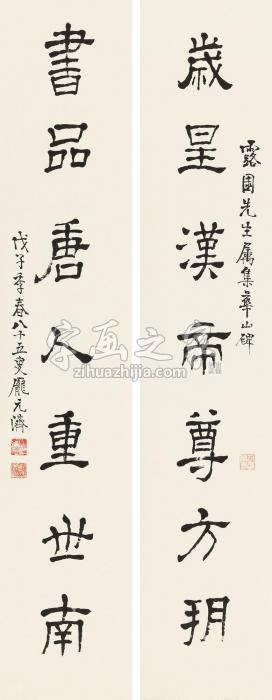 歲星漢帝尊方朔
露園先生属集華山碑
書品唐人重世南
戊子季春八十五叟龐元濟
字画之家
zihuazhijia.com